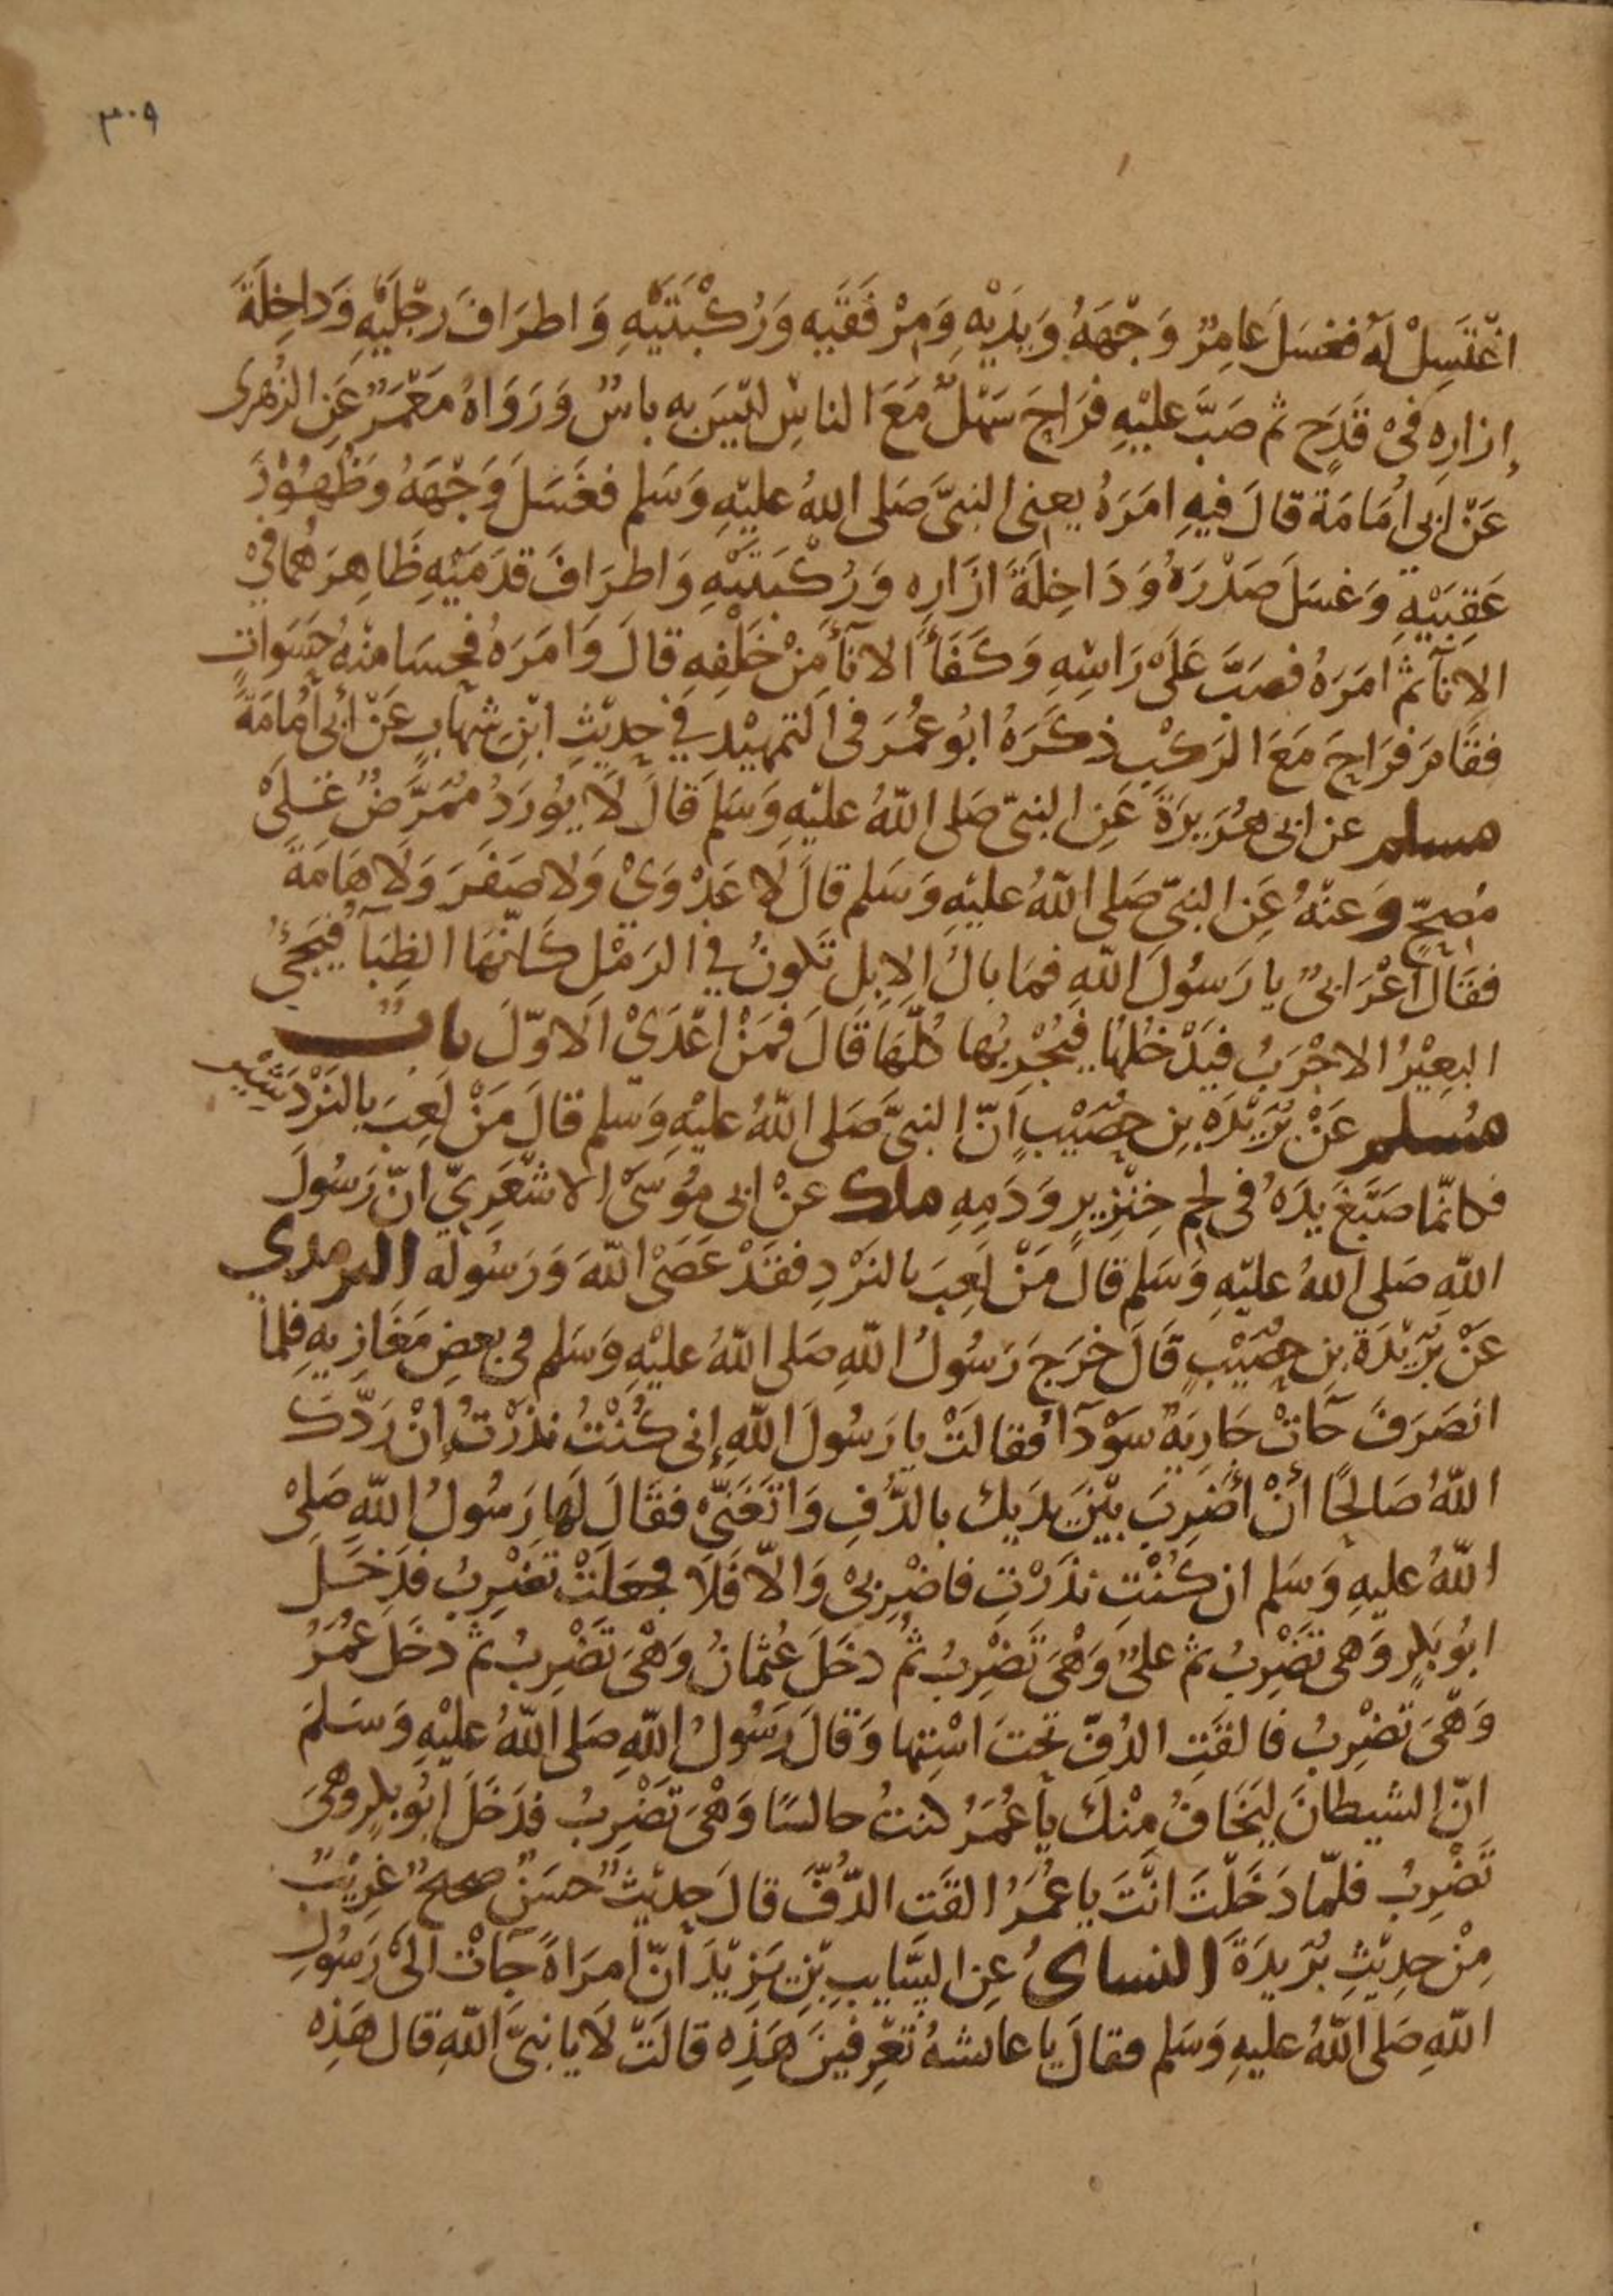 ٣٠٩
اغْتَسِلْ لَهُ فغسَلَ عامِرٌ وَجْهَهُ وَيَدَيْهِ وَمِرْفَقَيْهِ وَرُكْبَتَيْهِ وَاطرَافَ رِجْلَيْهِ وَدَاخِلَةَ
إزارِهِ فىْ قَدَحٍ ثم صَبَّ عليْهِ فرَاحَ سَهْلٌ مَعَ الناسِ ليْسَ به باسٌ وَرَوَاهُ مَعْمَرٌ عَنِ الزُهرى
عَنْ ابى امَامَة قالَ فيهِ امَرَهُ يعنى النبىَّ صَلى اللهُ عليْهِ وَسَلم فغَسَلَ وَجْهَهُ وَظُهُوْرَ
عَقِبَيْهِ وَغسَلَ صَدْرَهُ وَدَاخِلَةَ ازَارِهِ وَرُكْبَتَيْهِ وَاطرَافَ قدَمَيْهِ ظَاهِرَهُمَا فىْ
الانآء ثم امَرَهُ فصَبَّ عَلَى رَاسِهِ وَكَفَأَ الانآءَ مِنْ خَلْفِهِ قالَ وَامَرَهُ فحسَا منْهُ حَسَوَاتٍ
فقَامَ فرَاحَ مَعَ الرَكْبِ ذكَرَهُ ابُو عُمَرَ فى التمهيْد فى حدِيْثِ ابْنِ شهَابٍ عَنْ أبى أمَامَةَ
مسلم عن ابى هُرَيرَةَ عَنِ النبىّ صَلى اللّهُ عليْهِ وَسَلمَ قالَ لَا يُورَدُ مُمَرَّضٌ عَلىْ
مُصِحٍّ وَعنْهُ عَنِ النبىّ صَلى اللّهُ عليْهِ وَسَلم قالَ لَا عَدْوَىْ وَلَا صَفَرَ وَلَا هَامَةَ
فقَالَ أعْرَابىٌّ يا رَسُولَ اللّهِ فمَا بالُ الإبِلِ تَكونُ فى الرَمْلِ كَانّهَا الظِبَآء فيَجئُ
البعِيْرُ الاجْرَبُ فيَدْخُلهَا فيُجْرِبُها كُلّهَا قَالَ فمَنْ اعْدَىْ الَاوّلَ باب
مُسلم عَنْ بُرَيْدَه بنِ حصَيْبٍ اَنّ النبىَّ صَلى اللهُ عليْهِ وَسَلم قالَ مَنْ لَعِبَ بالنَرْدَشيْر
فكانّما صَبَغَ يدَهُ فى لحم خِنْزِيرٍ وَدَمِهِ ملك عنْ ابى مُوْسَىْ الاشْعَرِيّ انّ رَسُولَ
اللهِ صَلى اللهُ عليْهِ وَسَلم قالَ مَنْ لَعِبَ بالنَرْدِ فقَدْ عَصَىْ اللّهَ وَرَسُوله الترمذي
عَنْ بُرَيْدَةَ بنِ حصَيْبٍ قَالَ خرَجَ رَسُولُ اللّهِ صَلى اللّهُ عليْهِ وَسَلم فى بعضِ مَغَازِيهِ فلمّا
انصَرَفَ جَآتْ جَارِيَةٌ سَوْدَآءُ فقالَتْ يا رَسُولَ اللّهِ إنى كُنْتُ نذَرْتُ إنْ رَدّكَ
اللّهُ صَالحًا أنْ أضْرِبَ بيْنَ يدَيك بالدُّفِ وَاتَغَنّىْ فقَالَ لَها رَسُولُ اللّهِ صَلىْ
اللّهُ عليهِ وَسَلم ان كُنْتِ نذَرْتِ فاضْرِبىْ وَالّا فَلَا فجعَلَتْ تضْرِبُ فدَخَلَ
ابُو بَكرٍ وَهى تَضْرِبُ ثم علىٌّ وَهْىَ تَضْرِبُ ثُمّ دخَلَ عُثمانُ وَهْىَ تَضْرِبُ ثم دخَلَ عُمَرُ
وَهْىَ تضْرِبُ فالقَتِ الدُفّ تحتَ اسْتِها وَقالَ رَسُولُ اللّهِ صَلى اللّهُ عليْهِ وَسَلمَ
انّ الشيطانَ ليَخَافُ مِنْكَ يا عُمَرُ كنتُ جالسًا وَهْىَ تَضْرِبُ فدَخَلَ ابُو بكرٍ وهىَ
تَضْرِبُ فلمّا دَخَلْتَ انْتَ يا عُمَرُ القَت الدُّفَّ قالَ حدِيْثٌ حسَنٌ صحيحٌ غرِيْبٌ
مِنْ حدِيْثِ بُرَيدَةَ النساى عَنِ السَّايِبِ بْنِ يَزِيْدَ أنّ امرَاةً جَآتْ الَىْ رَسُولِ
اللّهِ صَلى اللّهُ عليهِ وَسَلم فقالَ يا عائشهُ تَعْرِفيْنَ هَذِه قالَتْ لَا يا نبىَّ اللّهِ قال هَذِه